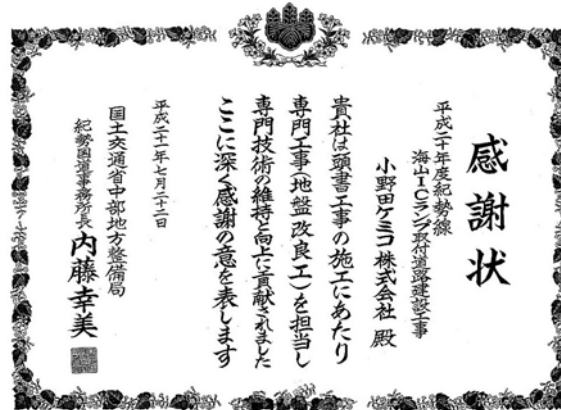 感謝状
平成二十年度紀勢線
海山ICランプ取付道路建設工事
小野田ケミコ株式会社 殿
貴社は頭書工事の施工にあたり
専門工事(地盤改良工)を担当し
専門技術の維持と向上に貢献されました
ここに深く感謝の意を表します
平成二十一年七月二十二日
国土交通省中部地方整備局
紀勢国道事務所長 内藤幸美